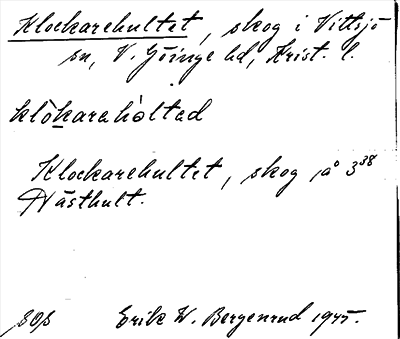 Klockarehultet, skog i Vittsjö
sn, V. Göinge hd, Krist. l.
klòkarahòltad
Klockarehultet, skog på 3³⁸
Hästhult.
Erik W. Bergenrud 1945.